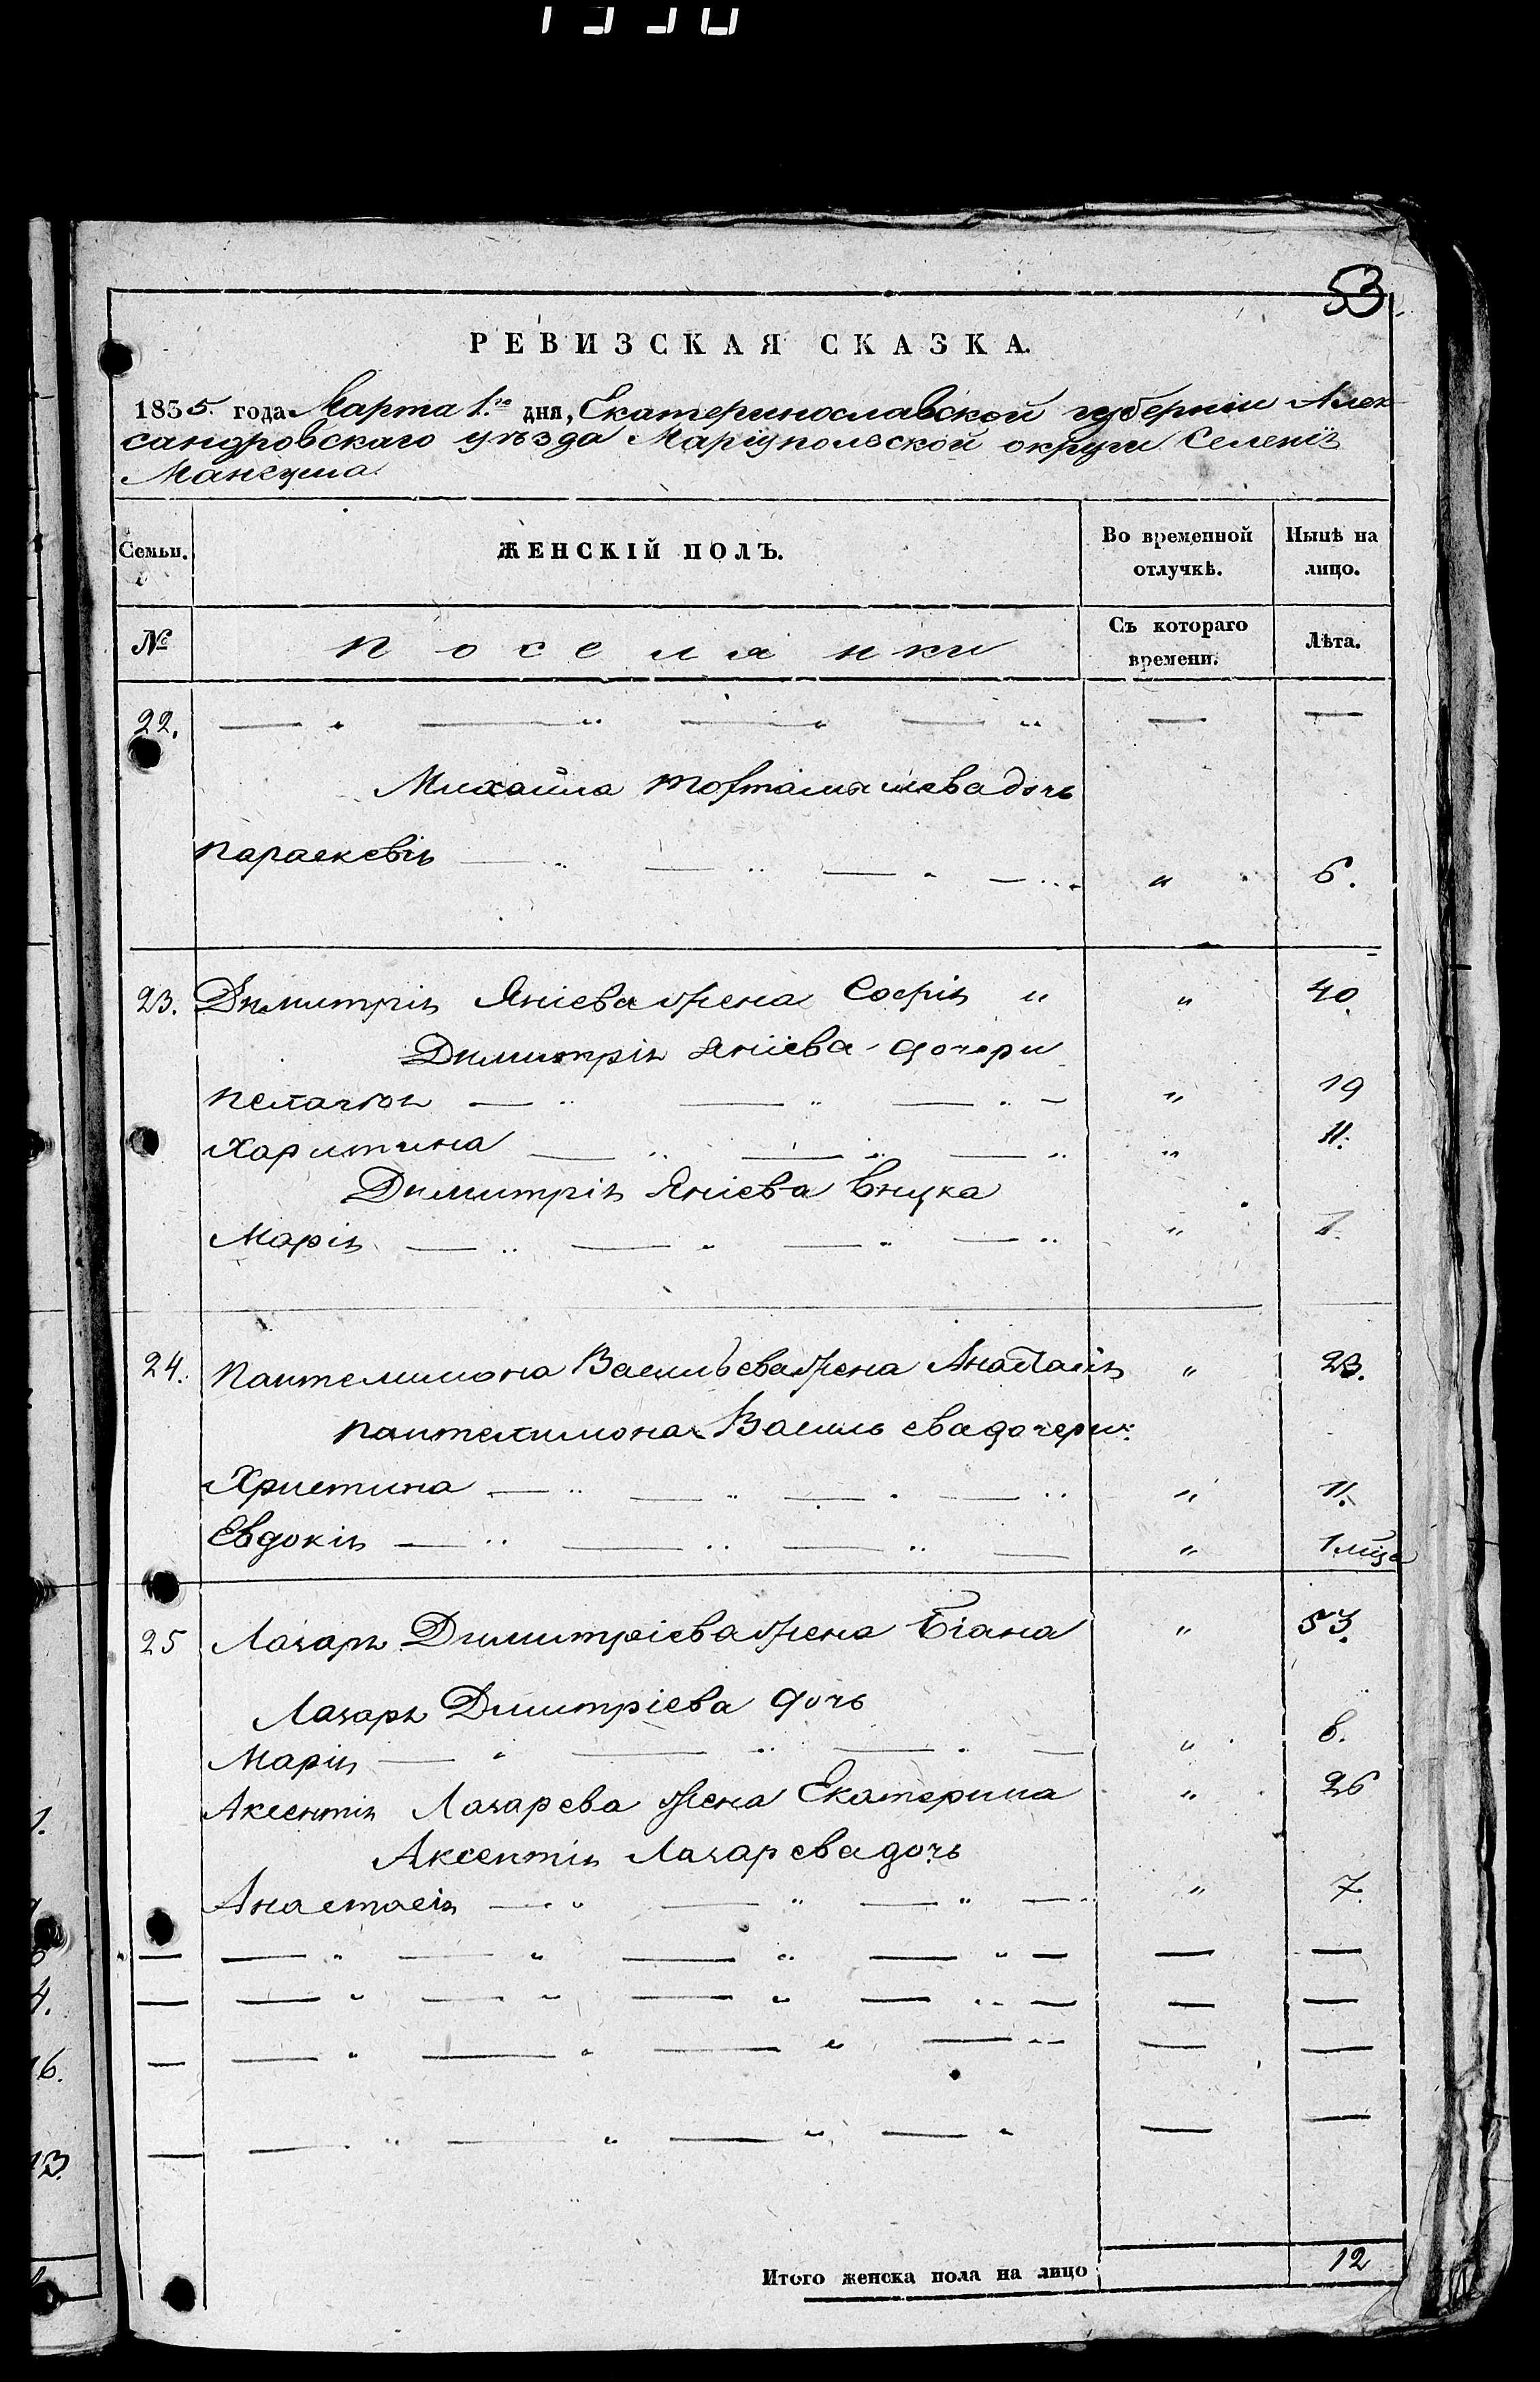 53
РЕВИЗСКАЯ СКАЗКА.
1855. года Марта 1.го дня, Екатеринославской губерніи Алек-
сандровскаго уѣзда Маріупольской округи Селенія
Мангуша.
Семьи. ЖЕНСКІЙ ПОЛЪ. Во временной отлучкѣ. Нынѣ на лицо.
№ Поселянки Съ котораго времени. Лѣта.
22. — " — " — " — " — —
Михайла дочь
Параскевія — " — " — " — " " 6.
23. Димитрія Яніева жена Софія " " 40.
Димитрія Яніева дочери
Пелагія — " — " — " — " 19
Харитина — " — " — " " 11.
Димитрія Яніева внука
Марія — " — " — " — " " 1.
24. Пантелимона Васильева жена Анастасія " 23.
Пантелимона Васильева дочери:
Христина — " — " — " — " " 11.
Евдокія — " — " — " — " 1 мѣся
25 Лазаря Димитріева жена " 53.
Лазаря Димитріева дочь
Марія — " — " — " — " 8.
Аксентія Лазарева жена Екатерина " 26
Аксентія Лазарева дочь
Анастасія — " — " — " — " " 7.
— — " — " — " — " — — —
— — " — " — " — " — — —
— — " — " — " — " — —
— — " — " — " — " — —
Итого женска пола на лицо 12